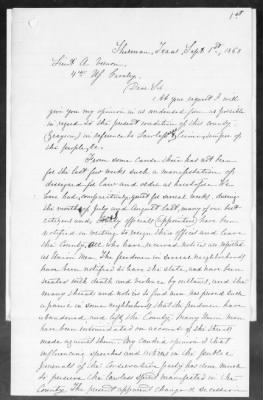 1st
Sherman, Texas, Sept. 1st, 1868
Lieut A. Vernon
4th US Cavalry
Dear Sir
At your request I will
give you my opinion in as condensed form as possible
in regard to the present condition of this county
(Grayson) in reference to lawlessness
the people, &c.
From some cause there has not been
for the last few weeks such a manifestation of
disregard for law and order as heretofore. We
have had, comparatively, quiet for several weeks. During
the month of July and August last, many of our best
citizens and County officials (appointees) have been
notified in writing, to resign their offices and leave
the County, all who have received notices are reported
as Union Men. The freedmen in several neighborhoods
have been notified to leave the state, and have been
treated with death and violence by outlaws, and the
many threats and notices to freed men has produced such
a panic in some neighborhoods that the freedmen have
abandoned, and left the County. Many Union men
have been intimidated on account of the threats
made against them. My candid opinion is that
influencing speeches and articles in the public
journals of the Conservative party has done much
to produce the lawless spirit manifested in the
County. The present apparent change &